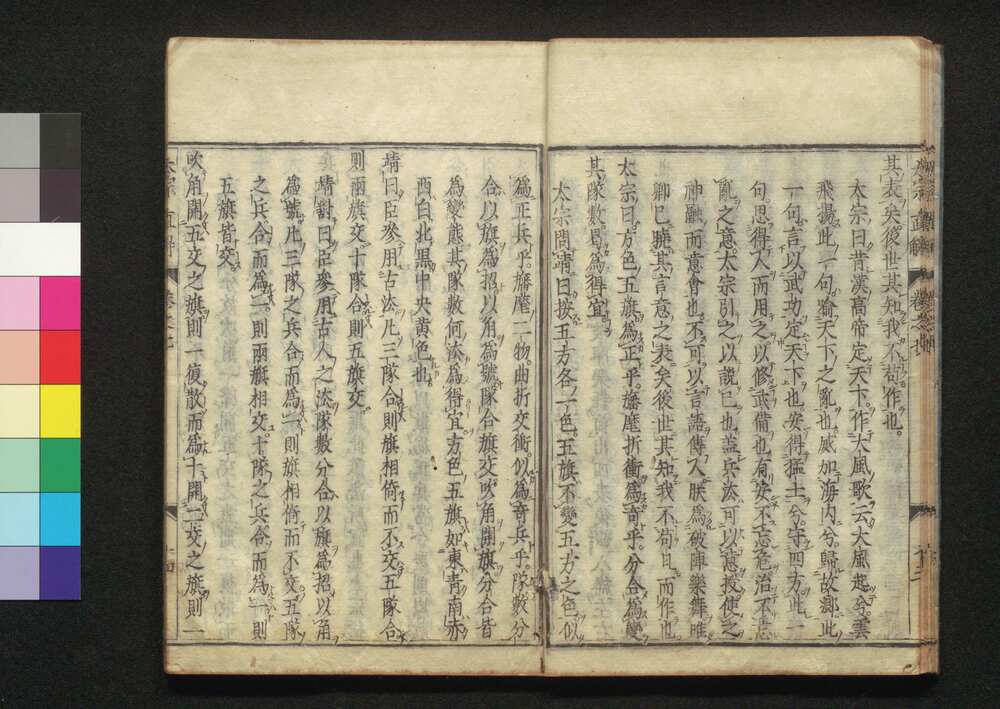 其表矣後世其知我不苟作也
太宗曰昔漢高帝定天下作大風歌云大風起兮雲
飛揚此一句喩天下之亂也威加海内兮歸故鄕此
一句言以武功定天下也安得猛士兮守四方此一
句思得人而用之以修武備也有安不忘危治不忘
亂之意太宗引之以說已也蓋兵法可以意授使之
神融而意會也不可以言語傳人朕爲破陣樂舞唯
卿已曉其言意之表矣後世其知我不苟且而作也
太宗曰方色五旗爲正乎旛麾折衝爲奇乎分合爲變
其隊數曷爲得宜
太宗問靖曰按五方各一色五旗不變五方之色似
爲正兵乎旛麾二物曲折交衝似爲奇兵乎隊數分
合以旗爲招以角爲號隊合旗交吹角開旗分合皆
爲變態其隊數何法爲得宜方色五旗如東青南赤
西白北黑中央黄色也
靖曰臣參用古法凡三隊合則旗相倚而不交五隊合
則兩旗交十隊合則五旗交
靖對曰臣參用古人之法隊數分合以旗爲招以角
爲號凡三隊之兵合而爲一則旗相倚而不交五隊
之兵合而爲一則兩旗相交十隊之兵合而爲一則
五旗皆交
吹角開五交之旗則一復散而爲十開二交之旗則一